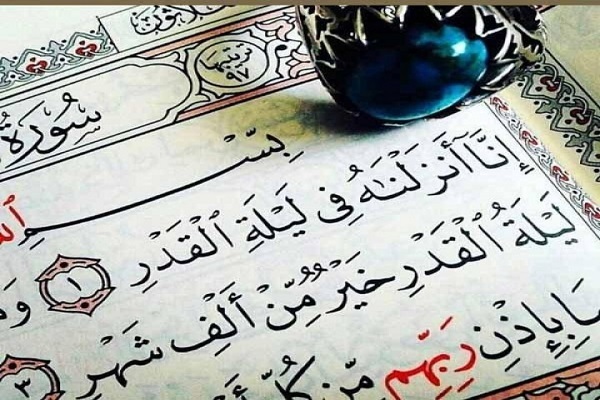 سُورَةُ
بِسْمِ ٱللَّ
إِنَّآ أَنزَلْنَٰهُ فِى لَيْلَةِ ٱلْقَدْرِ ١ وَمَ
لَيْلَةُ ٱلْقَدْرِ خَيْرٌ مِّنْ أَلْفِ شَهْرٍ ٣
بِإِذْنِ رَبِّهِم مِّن كُلِّ أَ